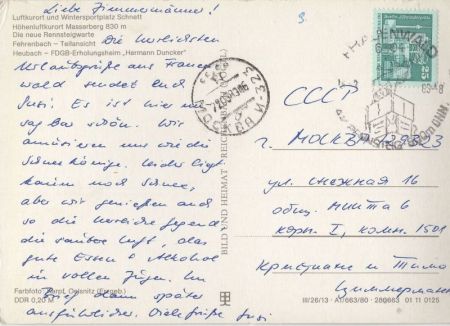 Liebe Zimmermänner!
Luftkurort und Wintersportplatz Schnett
Höhenluftkurort Massserberg 830 m
Die neue Rennsteigwarte
Fehrenbach – Teilansicht
Heubach – FDGB-Erholungsheim „Hermann Duncker"
Die herzlichsten
Urlaubsgrüße aus
wald sendet Euch
Susi. Es ist hier un-
sagbar schön. Wir
amüsieren uns wie die
Schneekönige. Leider liegt
kaum noch Schnee,
aber wir genießen auch
so die herrliche Gegend,
die saubere Luft, das
gute Essen + Alkohol
in vollen Zügen. Im
Brief dann später
ausführlicher. Viele Grüße Susi
Farbfoto Oelsnitz (Erzgeb.)
DDR 0,20 M
BILD UND HEIMAT REICHENBACH
МОСКВА
25
СССР
г. МОСКВА
ул. СНЕЖНАЯ 16
общ. МИНГГА
корп. I, комн. 1501
Кристиане и Тимо
Циммерман
III/26/13 A1/663/80 280663 01 11 0125